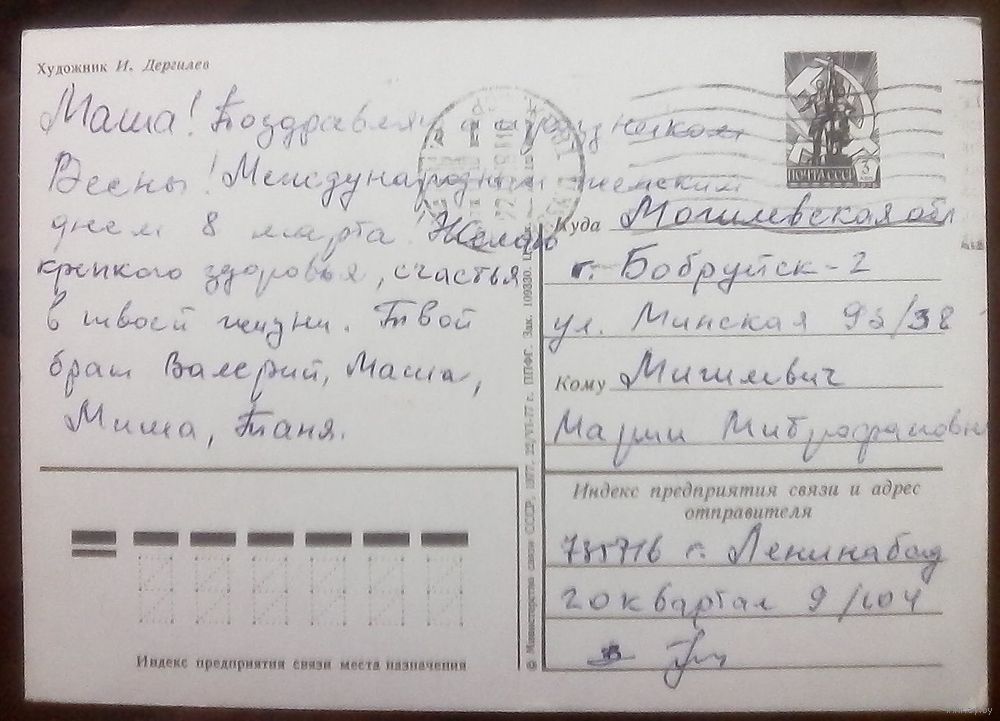 Художник И. Дергилев
Маша! Поздравляю с праздником
Весны! Международным женским
днем 8 марта. Желаю
крепкого здоровья, счастья
в твоей жизни. Твой
брат Валерий, Маша,
Миша, Таня.
ПОЧТА СССР
3
Куда Могилевская обл
г. Бобруйск-2
ул. Минская 95/38
Кому Мигилевич
Марии
Индекс предприятия связи и адрес
отправителя
г. Ленинабад
20 квартал 9/104
Индекс предприятия связи места назначения
© Министерство связи СССР, 1977. 22/VI-77 г. ППФГ. Зак. 109330.